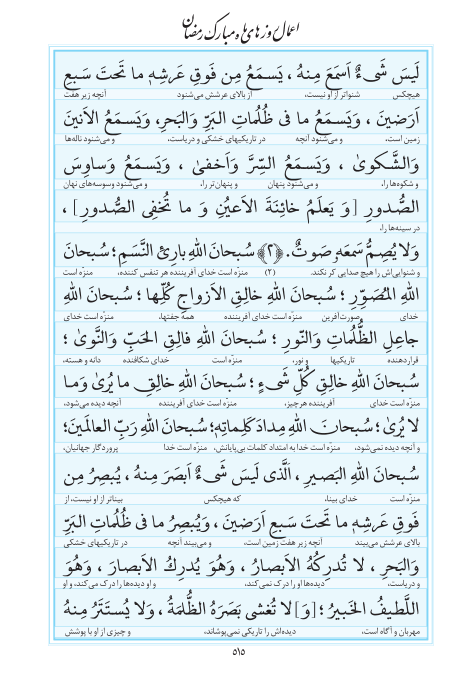 اعمال روزهای ماه مبارک رمضان
لَیسَ شَیءٌ اَسمَعَ مِنهُ ، یَسمَعُ مِن فَوقِ عَرشِهِ ما تَحتَ سَبعِ
هیچکس شنواتر از او نیست، از بالای عرشش می‌شنود آنچه زیر هفت
اَرَضینَ ، وَیَسمَعُ ما فی ظُلُماتِ البَرِّ وَالبَحرِ، وَیَسمَعُ الاَنینَ
زمین است، و می‌شنود آنچه در تاریکیهای خشکی و دریاست، و می‌شنود ناله‌ها
وَالشَّکویٰ ، وَیَسمَعُ السِّرَّ وَاَخفیٰ ، وَیَسمَعُ وَساوِسَ
و شکوه‌ها را، و می‌شنود پنهان و پنهان‌تر را، و می‌شنود وسوسه‌های نهان
الصُّدورِ [وَ یَعلَمُ خائِنَةَ الاَعیُنِ وَ ما تُخفِی الصُّدور] ،
در سینه‌ها را،
وَلا یُصِمُّ سَمعَهٗ صَوتٌ. ﴿۲﴾ سُبحانَ اللهِ بارِئِ النَّسَمِ ؛ سُبحانَ
و شنوایی‌اش را هیچ صدایی کر نکند. (۲) منزّه است خدای آفریننده هر تنفس کننده، منزّه است
اللهِ المُصَوِّرِ ؛ سُبحانَ اللهِ خالِقِ الاَزواجِ کُلِّها ؛ سُبحانَ اللهِ
خدای صورت‌آفرین منزّه است خدای آفریننده همهٔ جفتها، منزّه است خدای
جاعِلِ الظُّلُماتِ وَالنّورِ ؛ سُبحانَ اللهِ فالِقِ الحَبِّ وَالنَّویٰ ؛
قراردهنده تاریکیها و نور، منزّه است خدای شکافنده دانه و هسته،
سُبحانَ اللهِ خالِقِ کُلِّ شَیءٍ ؛ سُبحانَ اللهِ خالِقِ ما یُریٰ وَما
منزّه است خدای آفریننده هرچیز، منزّه است خدای آفریننده آنچه دیده می‌شود،
لا یُریٰ ؛ سُبحانَ اللهِ مِدادَ کَلِماتِهِ؛ سُبحانَ اللهِ رَبِّ العالَمینَ؛
و آنچه دیده نمی‌شود، منزّه است خدا به امتداد کلمات بی‌پایانش، منزّه است خدا پروردگار جهانیان،
سُبحانَ اللهِ البَصیرِ ، اَلَّذی لَیسَ شَیءٌ اَبصَرَ مِنهُ ، یُبصِرُ مِن
منزّه است خدای بینا، که هیچکس بیناتر از او نیست، از
فَوقِ عَرشِهِ ما تَحتَ سَبعِ اَرَضینَ ، وَیُبصِرُ ما فی ظُلُماتِ البَرِّ
بالای عرشش می‌بیند آنچه زیر هفت زمین است، و می‌بیند آنچه در تاریکیهای خشکی
وَالبَحرِ ، لا تُدرِکُهُ الاَبصارُ ، وَهُوَ یُدرِکُ الاَبصارَ ، وَهُوَ
و دریاست، دیده‌ها او را درک نمی‌کند، و او دیده‌ها را درک می‌کند، و او
اللَّطیفُ الخَبیرُ ؛ [وَ] لا تُغشی بَصَرَهُ الظُّلمَةُ ، وَلا یُستَتَرُ مِنهُ
مهربان و آگاه است، دیده‌اش را تاریکی نمی‌پوشاند، و چیزی از او با پوشش
۵۱۵